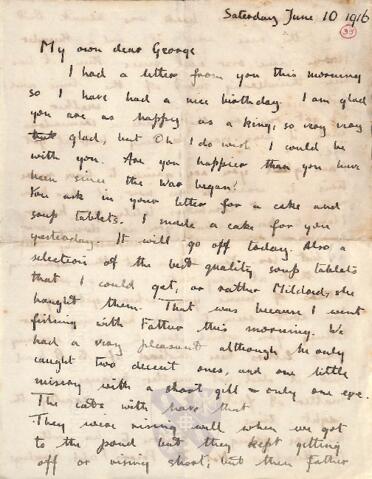 Saturday June 10 1916
39
My own dear George
I had a letter from you this morning
so I have had a nice birthday. I am glad
you are as happy as a king, so very very
that glad, but Oh I do wish I could be
with you. Are you happier than you have
been since the War began?
You ask in your letter for a cake and
soup tablets. I made a cake for you
yesterday. It will go off today. Also a
selection of the best quality soup tablets
that I could get, or rather Mildred, she
bought them. That was because I went
fishing with Father this morning. We
had a very pleasant although he only
caught two decent ones, and one little
misery with a short gill & only one eye.
The cats with have that
They were rising well when we got
to the pond but they kept getting
off or rising short, but then father